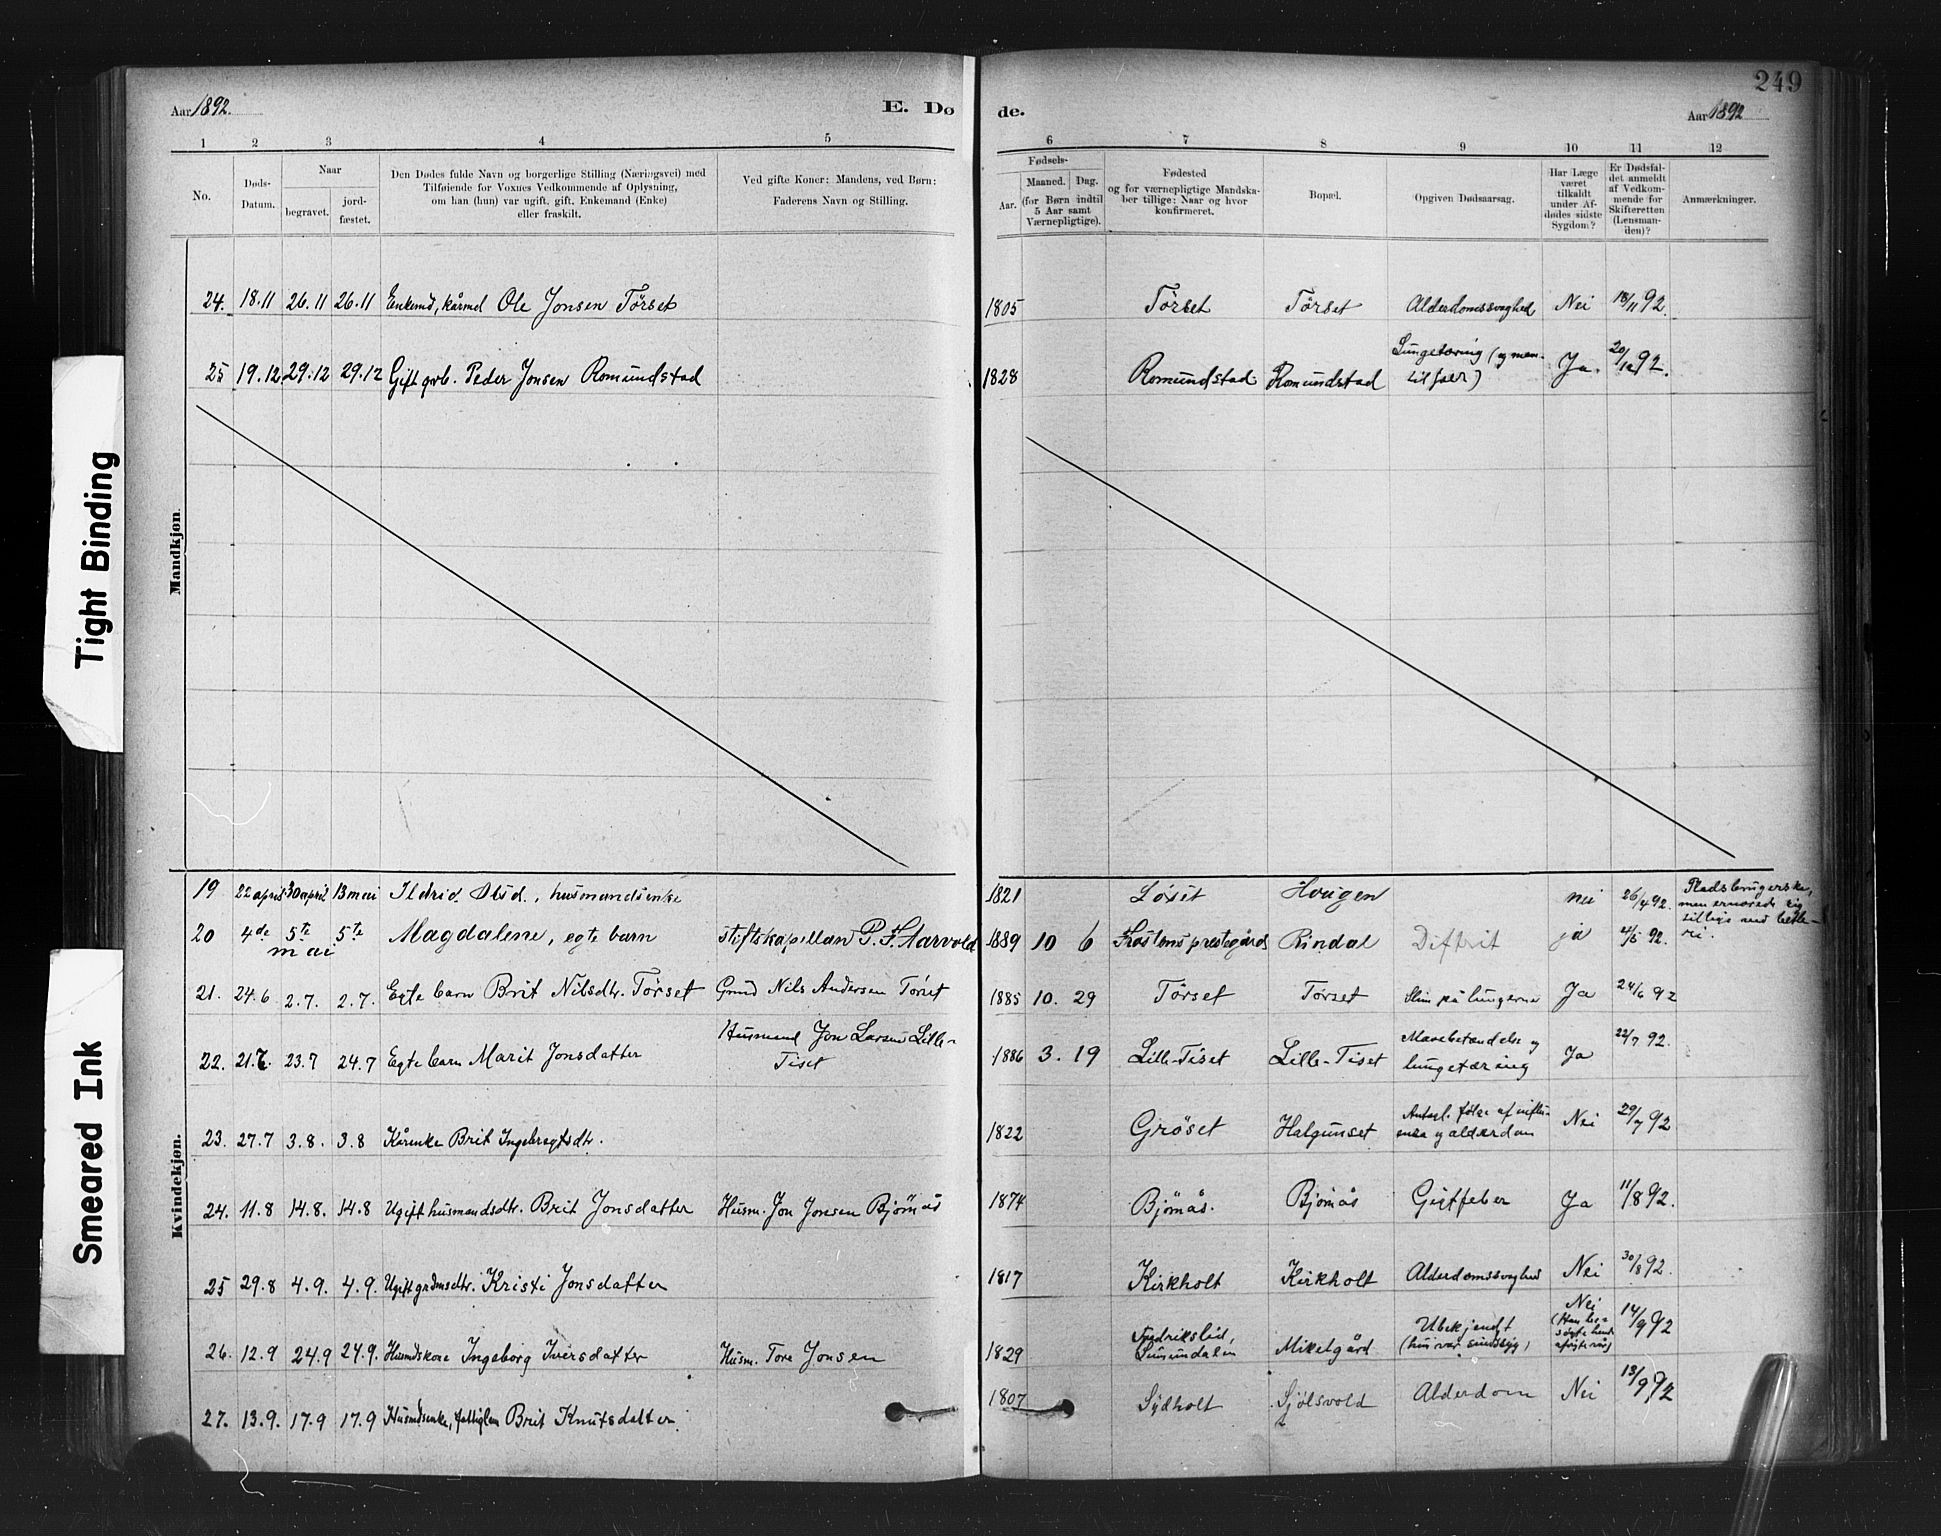 249
Aar 1892. E. Dø de. Aar 1892
1 2 3 4 5 6 7 8 9 10 11 12
No.
Døds-
Datum.
Naar
begravet.
jord-
fæstet.
Den Dødes fulde Navn og borgerlige Stilling (Næringsvei) med
Tilføiende for Voxnes Vedkommende af Oplysning,
om han (hun) var ugift, gift, Enkemand (Enke)
eller fraskilt.
Ved gifte Koner: Mandens, ved Børn:
Faderens Navn og Stilling.
Fødsels-
Aar.
Maaned. Dag.
(for Børn indtil
5 Aar samt
Værnepligtige).
Fødested
og for værnepligtige Mandska-
ber tillige: Naar og hvor
konfirmeret.
Bopæl.
Opgiven Dødsaarsag.
Har Læge
været
tilkaldt
under Af-
dødes sidste
Sygdom?
Er Dødsfal-
det anmeldt
af Vedkom-
mende for
Skifteretten
(Lensman-
den)?
Anmærkninger.
Mandkjøn.
24. 18.11 26.11 26.11 Enkemd, kårmd Ole Jonsen Törset 1805 Törset Törset Alderdomssvaghed Nei 18/11 92.
25 19.12 29.12 29.12 Gift grb. Peder Jonsen Romundstad 1828 Romundstad Romundstad Lungetæring Ja. 20/12 92.
Kvindekjøn.
19 22 april 30 april 13 mai Ildrid Olsd., husmandsenke 1821 Löset Hougen nei 26/4 92. Pladsbrugerske,
men ernærede sig
20 4de 5te 5te Magdalene, egte barn stiftskapellan P. F. Aarvold 1889 10 6 prestegård Rindal Diftrit ja 4/5 92.
mai
21. 24.6 2.7. 2.7. Egte barn Brit Nilsdtr. Törset Grmd Nils Andersen Törset 1885 10. 29 Törset Törset Slim på lungerne Ja 24/6 92
22. 21.7. 23.7 24.7 Egte barn Marit Jonsdatter Husmand Jon Larsen Lille-
Tiset 1886 3. 19 Lille-Tiset Lille-Tiset Mavebetændelse og
lungetæring Ja 22/7 92.
23. 27.7 3.8. 3.8 Kårenke Brit Ingebrigtsdtr. 1822 Gröset Halgunset Antagl. følge af influ-
enza og alderdom Nei 29/7 92
24. 11.8 14.8. 14.8 Ugift husmandsdtr. Brit Jonsdatter Husm. Jon Jonsen Bjömås 1874 Bjömås. Bjömås Gigtfeber Ja 11/8 92.
25 29.8 4.9. 4.9. Ugift grdmsdtr. Kristi Jonsdatter 1817 Kirkholt Kirkholt Alderdomssvaghed Nei 30/8 92.
26. 12.9 24.9 24.9. Husmdskone Ingeborg Iversdatter Husm. Tore Jonsen 1829 Fredrikslid,
Sunndalen Mikelgård Ubekjendt
(hun var sindssyg) Nei
(Han be-
søgte hende
14/9 92
27. 13.9. 17.9 17.9 Husmdsenke, fattiglem Brit Knutsdatter. 1807 Sydholt Sjölsvold Alderdom Nei 13/9 92
Tight Binding
Smeared Ink